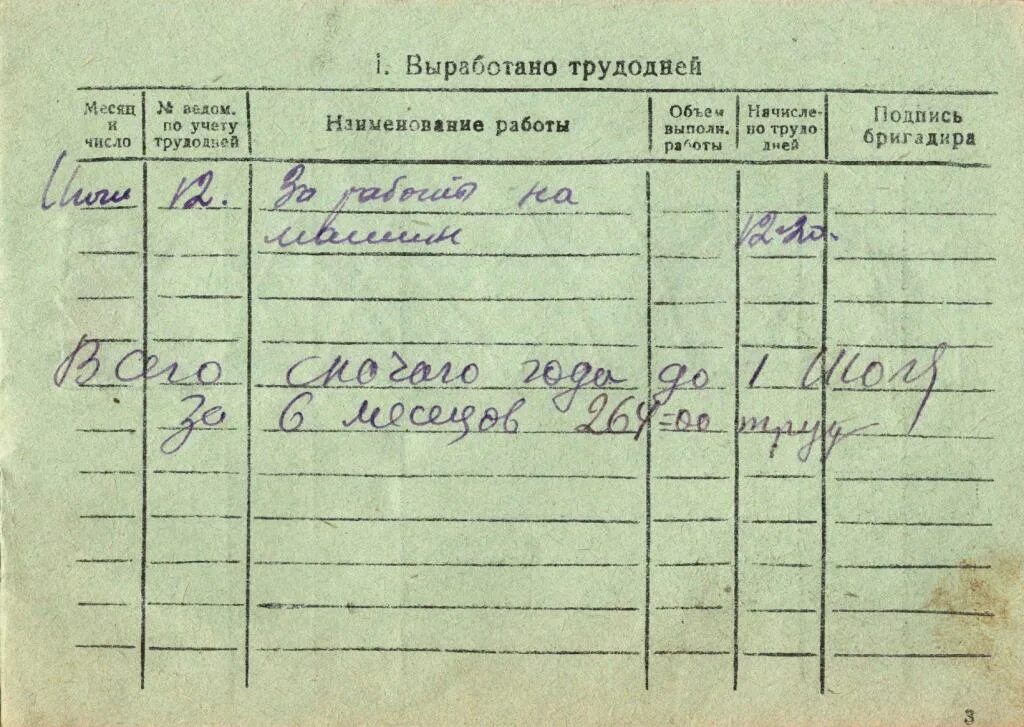 1. Выработано трудодней
Месяц и число
№ ведом. по учету трудодней
Наименование работы
Объем выполн. работы
Начисле-но трудо дней
Подпись бригадира
12. За работы на
машин 12-20.
Всего сначало года до 1 Июля
За 6 месецов 264=00 труд
3